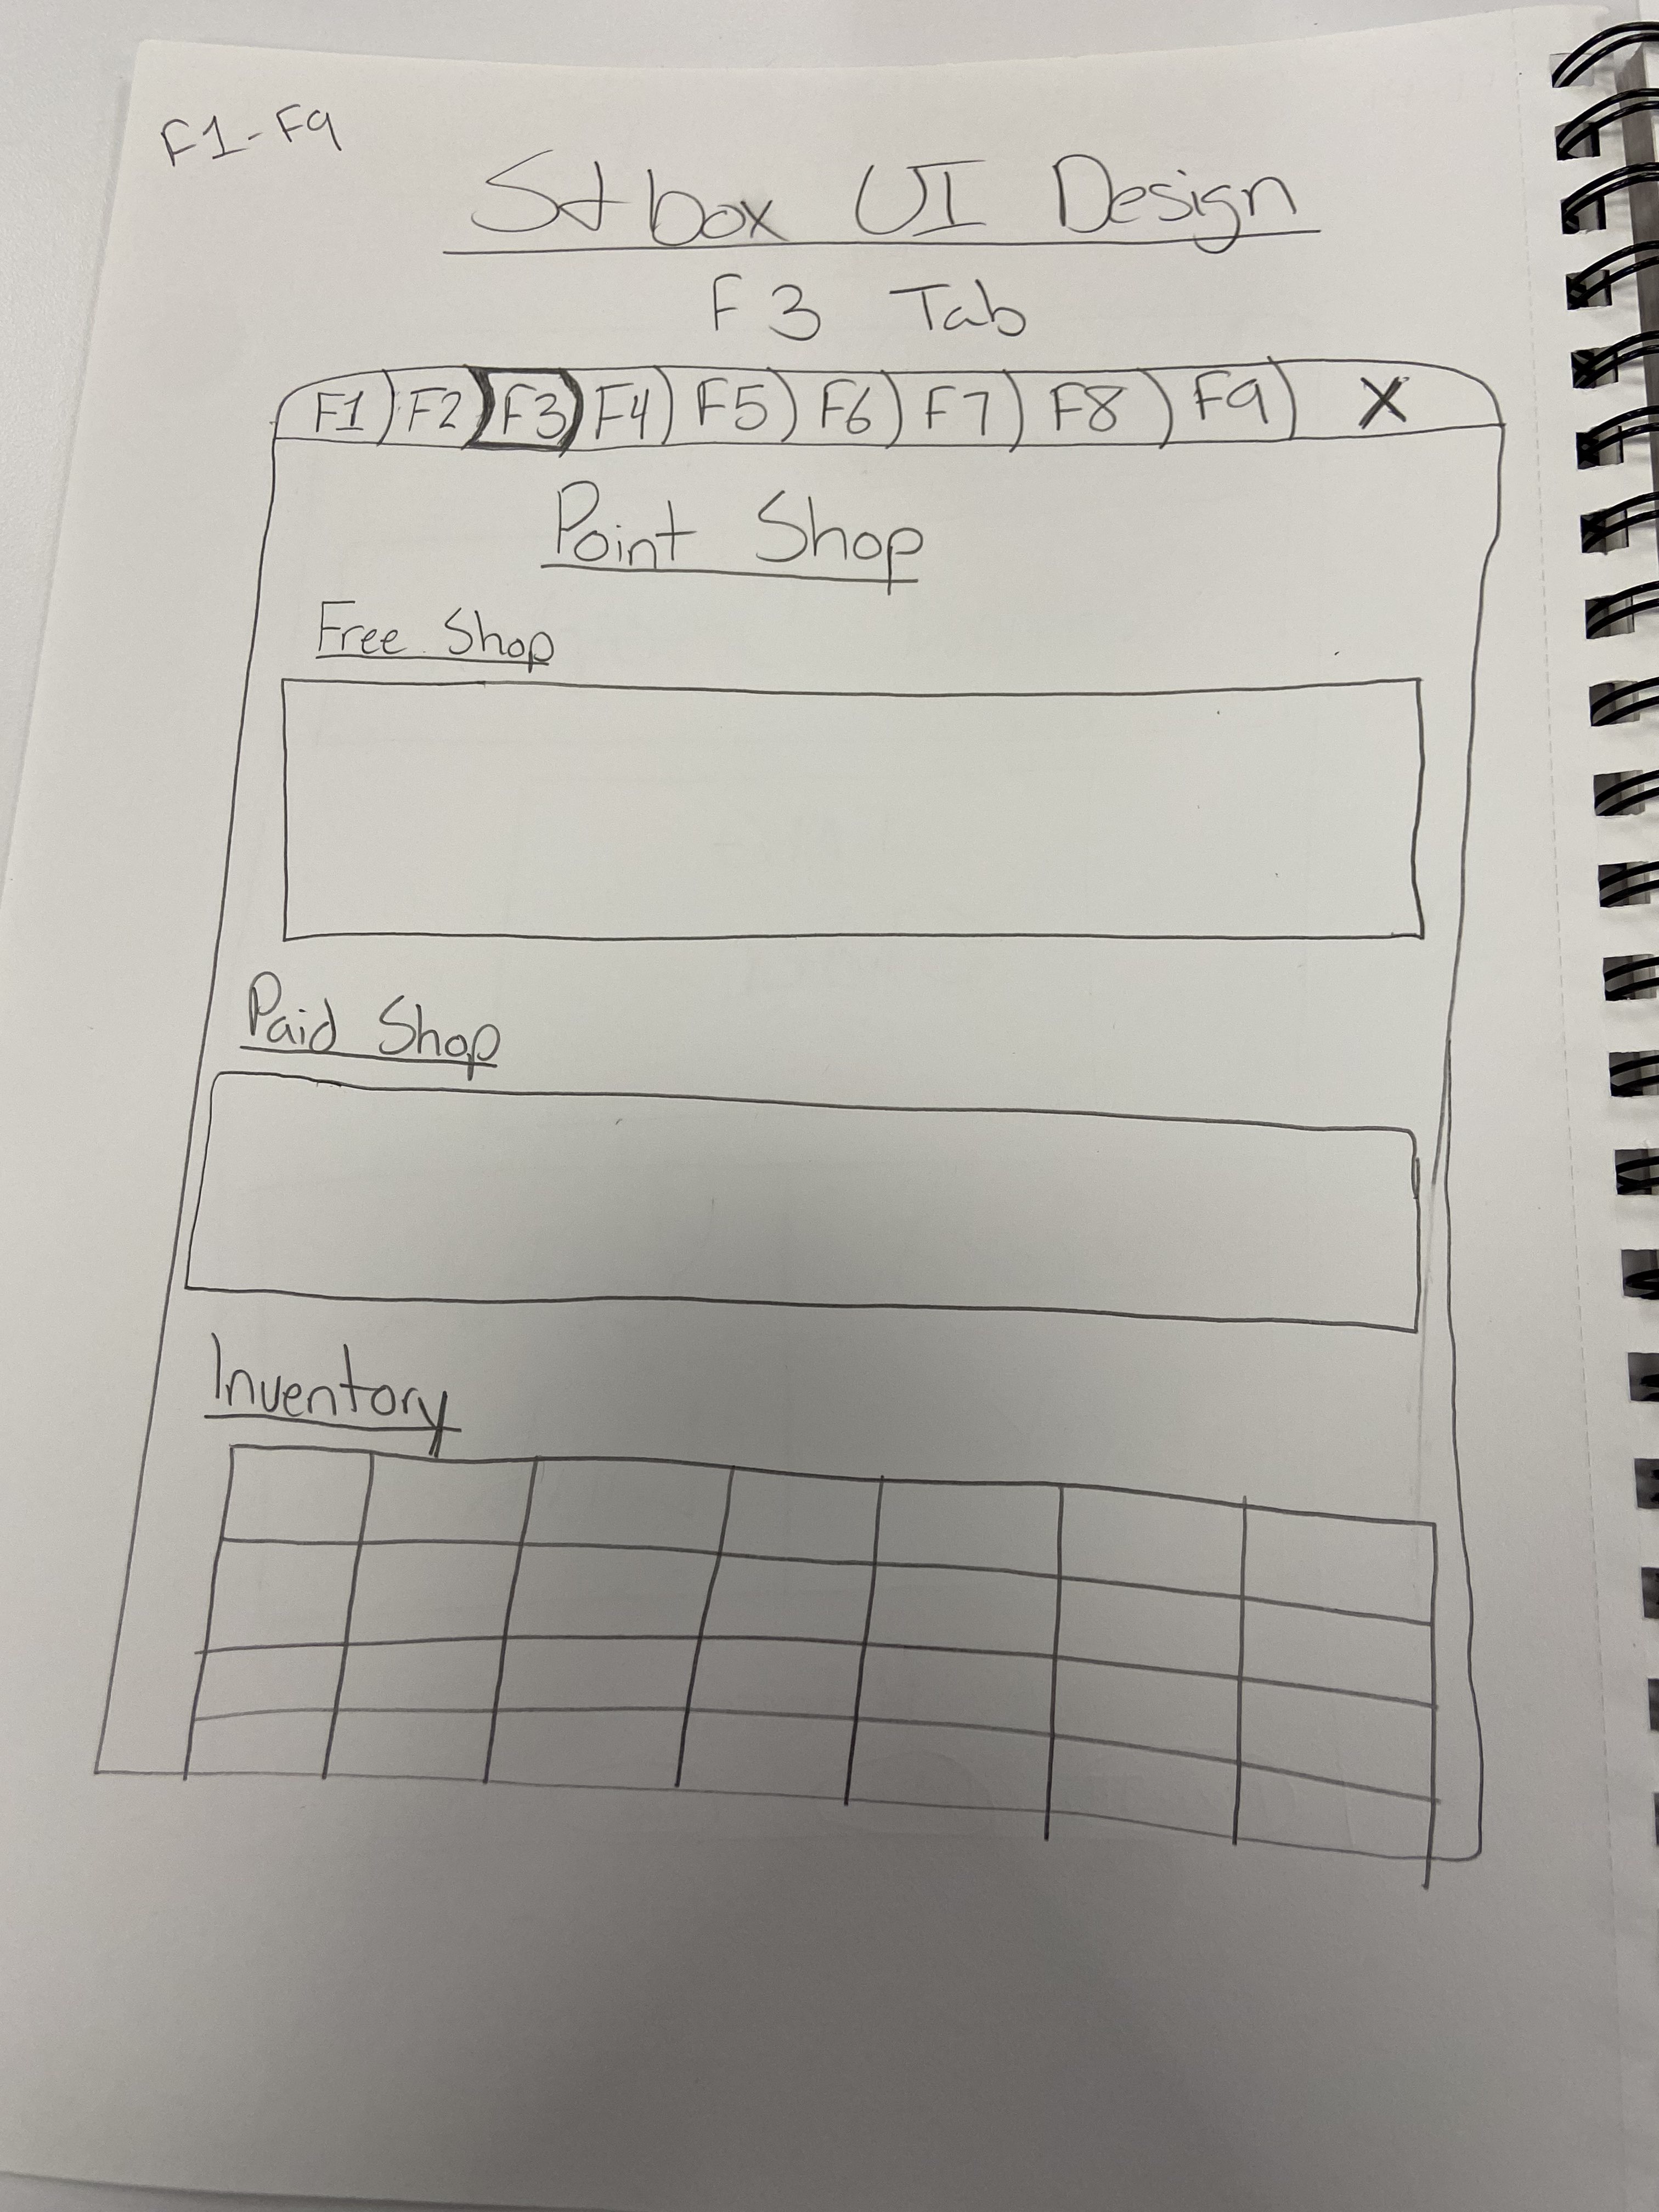 F1-F9
S+box UI Design
F3 Tab
F1 F2 F3 F4 F5 F6 F7 F8 F9 X
Point Shop
Free Shop
Paid Shop
Inventory